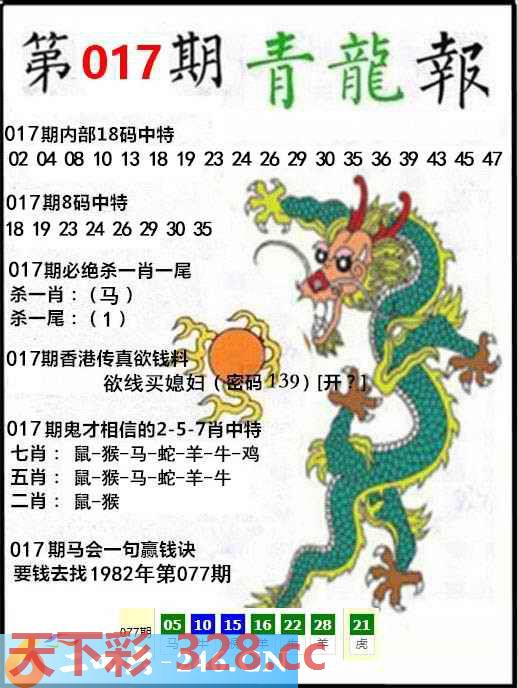 第017期青龍報
017期内部18码中特
02 04 08 10 13 18 19 23 24 26 29 30 35 36 39 43 45 47
017期8码中特
18 19 23 24 26 29 30 35
017期必绝杀一肖一尾
杀一肖：（马）
杀一尾：（1）
017期香港传真欲钱料
欲线买媳妇（密码139）[开？]
017期鬼才相信的2-5-7肖中特
七肖： 鼠-猴-马-蛇-羊-牛-鸡
五肖： 鼠-猴-马-蛇-羊-牛
二肖： 鼠-猴
017期马会一句赢钱诀
要钱去找1982年第077期
077期 05 10 15 16 22 28 21
马 羊 虎
天下彩-328.cc